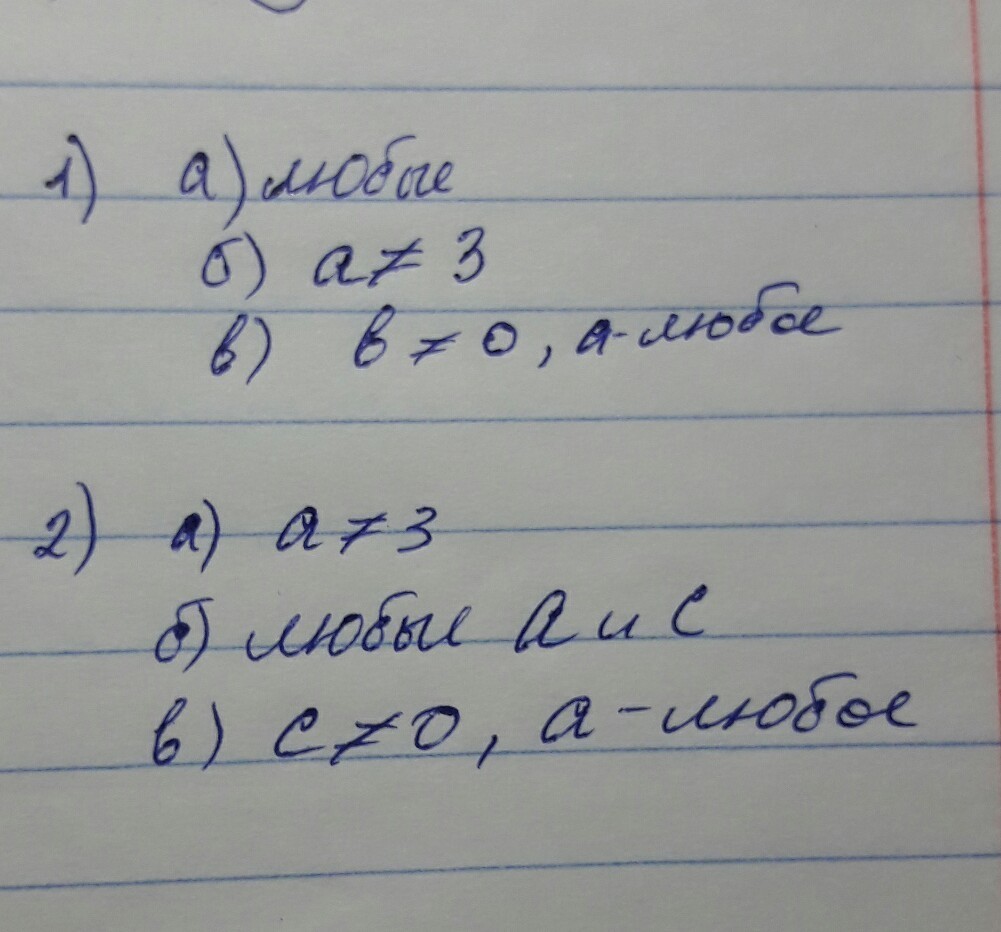 1) а) любые
б) a ≠ 3
в) в ≠ 0, а-любое
2) а) a ≠ 3
б) любые а и с
в) с ≠ 0, а-любое